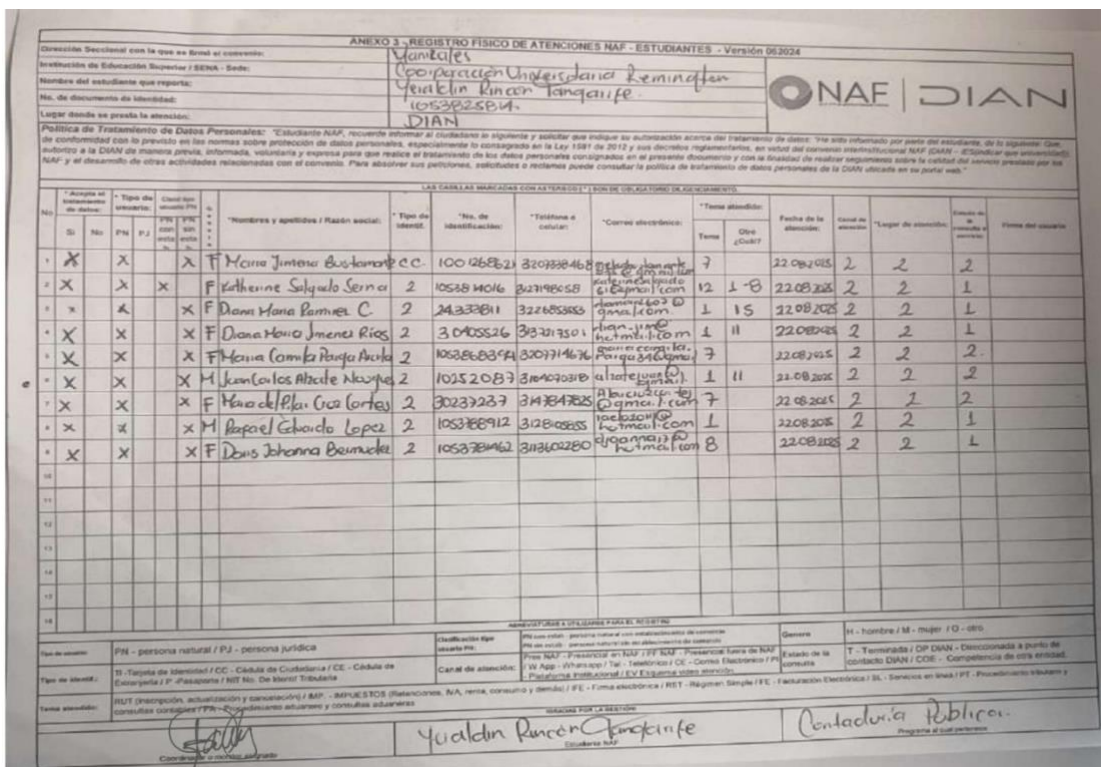 ANEXO 3 - REGISTRO FÍSICO DE ATENCIONES NAF - ESTUDIANTES - Versión 062024
Dirección Seccional con la que se firmó el convenio: Manizales
Institución de Educación Superior / SENA - Sede: Coorporación Universitaria Remington
Nombre del estudiante que reporta: Yeraldin Rincon Tangarife.
No. de documento de identidad: 1053825814.
Lugar donde se presta la atención: DIAN
NAF | DIAN
Política de Tratamiento de Datos Personales: "Estudiante NAF, recuerde informar al ciudadano lo siguiente y solicitar que indique su autorización acerca del tratamiento de datos: "He sido informado por parte del estudiante, de lo siguiente: Que,
de conformidad con lo previsto en las normas sobre protección de datos personales, especialmente lo consagrado en la Ley 1581 de 2012 y sus decretos reglamentarios, en virtud del convenio interinstitucional NAF (DIAN - IES(indicar que universidad),
autorizo a la DIAN de manera previa, informada, voluntaria y expresa para que realice el tratamiento de los datos personales consignados en el presente documento y con la finalidad de realizar seguimiento sobre la calidad del servicio prestado por los
NAF y el desarrollo de otras actividades relacionadas con el convenio. Para absolver sus peticiones, solicitudes o reclamos puede consultar la política de tratamiento de datos personales de la DIAN ubicada en su portal web."
LAS CASILLAS MARCADAS CON ASTERISCO (*) SON DE OBLIGATORIO DILIGENCIAMIENTO.
No * Acepta el tratamiento de datos: Si No * Tipo de usuario: PN PJ PN con PN sin *Nombres y apellidos / Razón social: * Tipo de identif. *No. de identificación: *Teléfono o celular: *Correo electrónico: *Tema atendido: Tema Otro ¿Cuál? Fecha de la atención: Canal de atención *Lugar de atención: Estado de la consulta o servicio: Firma del usuario
1 X X X F Maria Jimena Bustamante C.C. 3207338468 7 22082025 2 2 2
2 X X X F Katherine Salgado Serna 2 1053814016 3127198058 12 1-8 22082025 2 2 1
3 X X X F Diana Maria Ramirez C. 2 24333811 3226853553 1 15 22082025 2 2 1
4 X X X F Diana Maria Jimenez Rios 2 30405526 3137217501 1 11 22082025 2 2 1
5 X X X F Maria Camila Parga 2 3207714676 7 22082025 2 2 2.
6 X X X M Juan Carlos Alzate 2 10252087 3104070318 1 11 22.08.2025 2 2 2
7 X X X F Maria del Pilar Cruz Cortes 2 30237237 3147847825 7 22082025 2 2 2
8 X X X M Rafael Eduardo Lopez 2 1053788912 3128105855 1 22082025 2 2 1
9 X X X F Doris Johanna Bermudez 2 3113602280 8 22082025 2 2 1
10
11
12
13
14
15
16
ABREVIATURAS A UTILIZARSE PARA EL REGISTRO
Tipo de usuario: PN - persona natural / PJ - persona jurídica
Clasificación tipo usuario PN: PN con estab - persona natural con establecimiento de comercio
PN sin estab - persona natural sin establecimiento de comercio
Genero H - hombre / M - mujer / O - otro
Tipo de identif.: TI -Tarjeta de Identidad / CC - Cédula de Ciudadanía / CE - Cédula de Extranjería / P -Pasaporte / NIT No. De Identif Tributaria
Canal de atención: Pres NAF - Presencial en NAF / PF NAF - Presencial fuera de NAF / W App - Whatsapp / Tel - Telefónico / CE - Correo Electrónico / PI - Plataforma Institucional / EV Esquema video atención
Estado de la consulta T - Terminada / DP DIAN - Direccionada a punto de contacto DIAN / COE - Competencia de otra entidad.
Tema atendido: RUT (Inscripción, actualización y cancelación) / IMP. - IMPUESTOS (Retenciones, IVA, renta, consumo y demás) / IFE - Firma electrónica / RST - Régimen Simple / FE - Facturación Electrónica / SL - Servicios en línea / PT - Procedimiento tributario y
consultas contables / PA - Procedimiento aduanero y consultas aduaneras
GRACIAS POR LA GESTIÓN
Yeraldin Rincon Tangarife
Contaduría Pública.
Coordinador o monitor asignado
Estudiante NAF
Programa al cual pertenece